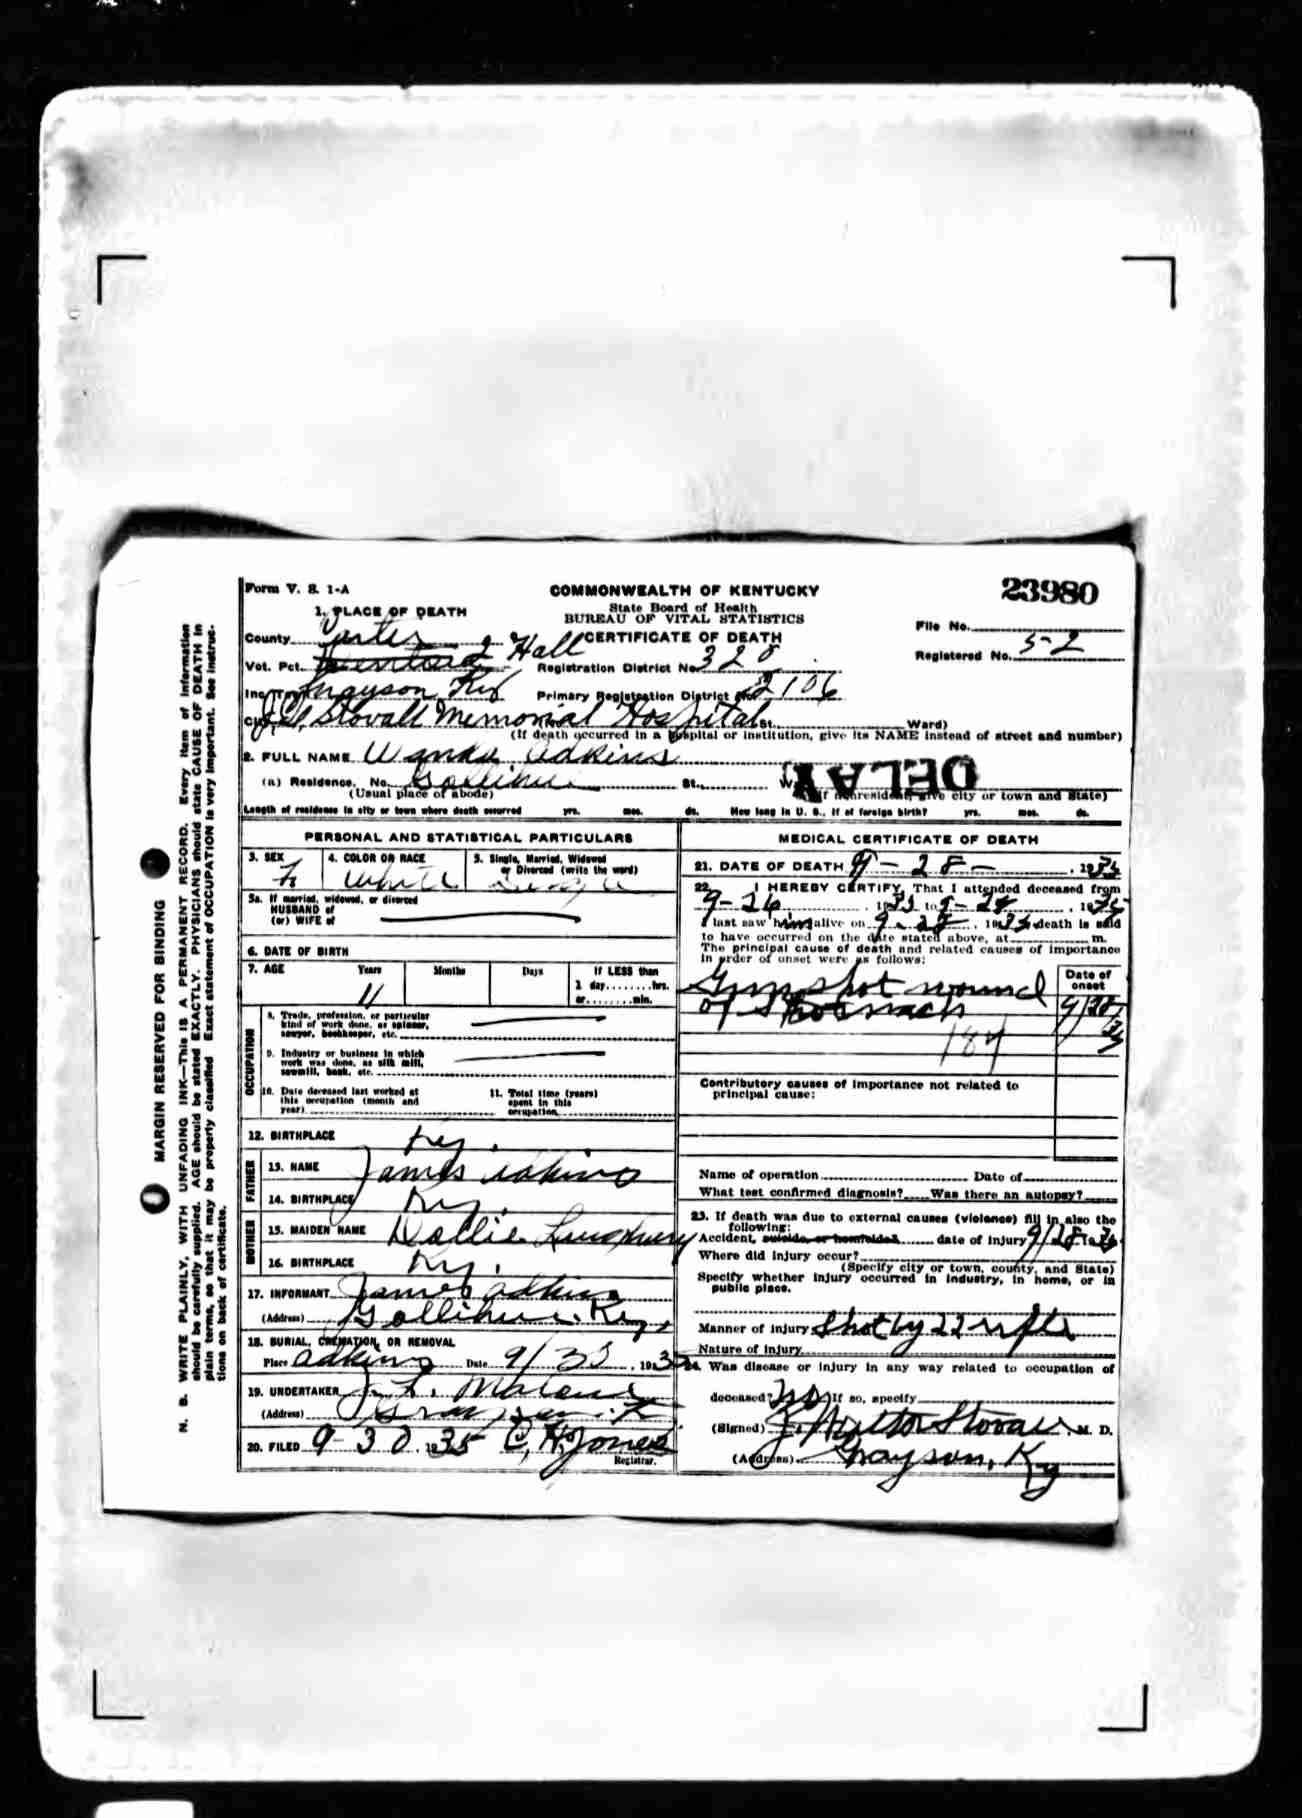 Form V. S. 1-A
COMMONWEALTH OF KENTUCKY
23980
State Board of Health
BUREAU OF VITAL STATISTICS
CERTIFICATE OF DEATH
1. PLACE OF DEATH
File No.
County Carter
Registered No. 52
Vot. Pct. Hall
Registration District No. 320
Inc. Town Grayson Ky
Primary Registration District No. 2106
City J.Q. Stovall Memorial Hospital St. Ward)
(If death occurred in a hospital or institution, give its NAME instead of street and number)
2. FULL NAME Wanda Adkins
DELAY
(a) Residence. No. Gollihue St. W
(Usual place of abode)
(If nonresident, give city or town and State)
Length of residence in city or town where death occurred yrs. mos. ds. How long in U. S., if of foreign birth? yrs. mos. ds.
PERSONAL AND STATISTICAL PARTICULARS
3. SEX F
4. COLOR OR RACE White
5. Single, Married, Widowed or Divorced (write the word) Single
5a. If married, widowed, or divorced
HUSBAND of
(or) WIFE of
6. DATE OF BIRTH
7. AGE Years 11 Months Days If LESS than
1 day........hrs.
or........min.
OCCUPATION
8. Trade, profession, or particular
kind of work done, as spinner,
sawyer, bookkeeper, etc.
9. Industry or business in which
work was done, as silk mill,
sawmill, bank, etc.
10. Date deceased last worked at
this occupation (month and
year)
11. Total time (years)
spent in this
occupation
12. BIRTHPLACE Ky.
FATHER
13. NAME James Adkins
14. BIRTHPLACE Ky.
MOTHER
15. MAIDEN NAME Dollie
16. BIRTHPLACE Ky.
17. INFORMANT James Adkins
(Address) Gollihue Ky.
18. BURIAL, CREMATION, OR REMOVAL
Place Adkins Date 9/ , 193
19. UNDERTAKER J. L. Malone
(Address) Grayson, K
20. FILED 9-30, 1935 C. H. Jones
Registrar.
MEDICAL CERTIFICATE OF DEATH
21. DATE OF DEATH 9-28-, 1935
22. I HEREBY CERTIFY, That I attended deceased from
9-26, 1935 to 9-28, 1935
I last saw him alive on 9-28, 1935 death is said
to have occurred on the date stated above, at m.
The principal cause of death and related causes of importance
in order of onset were as follows:
Date of
onset
Gun shot wound
of Stomach 9/28/35
184
Contributory causes of importance not related to
principal cause:
Name of operation Date of
What test confirmed diagnosis? Was there an autopsy?
23. If death was due to external causes (violence) fill in also the
following:
Accident, suicide, or homicide? date of injury 9/28
Where did injury occur?
(Specify city or town, county, and State)
Specify whether injury occurred in industry, in home, or in
public place.
Manner of injury Shot by 22 rifle
Nature of injury
24. Was disease or injury in any way related to occupation of
deceased? No If so, specify
(Signed) J. Watts Stovall M. D.
(Address) Grayson, Ky
MARGIN RESERVED FOR BINDING
N. B. WRITE PLAINLY, WITH UNFADING INK—THIS IS A PERMANENT RECORD. Every item of information
should be carefully supplied. AGE should be stated EXACTLY. PHYSICIANS should state CAUSE OF DEATH in
plain terms, so that it may be properly classified. Exact statement of OCCUPATION is very important. See instruc-
tions on back of certificate.